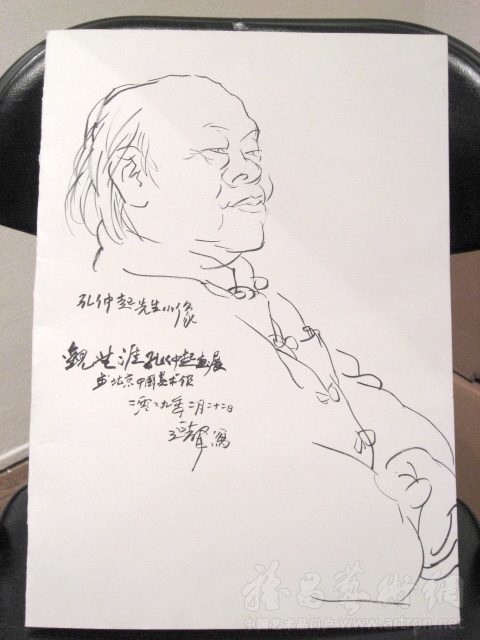 孔仲起先生小像
观生涯孔仲起画展
于北京中国美术馆
二零零九年二月二十二日
写
雅昌艺术网
中国艺术品门户 www.artron.net